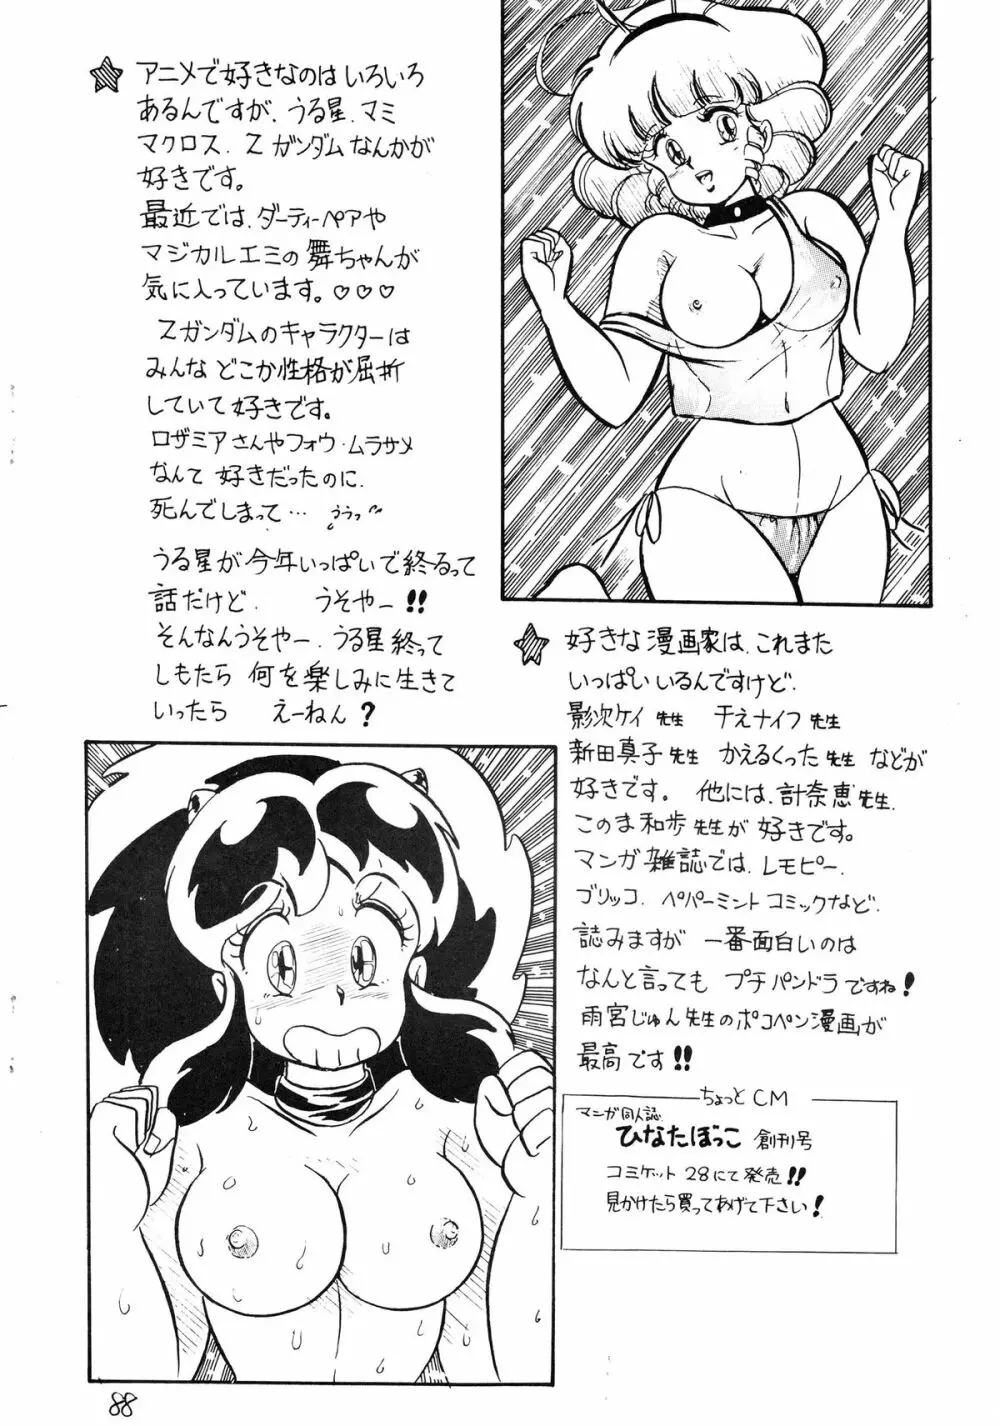 アニメで好きなのはいろいろ
あるんですが、うる星、マミ
マクロス、Zガンダムなんかが
好きです。
最近では、ダーティーペアや
マジカルエミの舞ちゃんが
気に入っています。♡♡♡
Zガンダムのキャラクターは
みんなどこか性格が屈折
していて好きです。
ロザミアさんやフォウ・ムラサメ
なんて好きだったのに、
死んでしまって… ううっ
うる星が今年いっぱいで終るって
話だけど、 うそやー!!
そんなんうそやー、うる星終って
しもたら 何を楽しみに生きて
いったら えーねん?
好きな漫画家は、これまた
いっぱいいるんですけど、
影次ケイ先生 千之ナイフ先生
新田真子先生 かえるくった先生 などが
好きです。 他には、計奈恵先生、
このま和歩先生が好きです。
マンガ雑誌では、レモピー、
ブリッコ、ペパーミントコミックなど、
読みますが 一番面白いのは
なんと言っても プチパンドラですね!
雨宮じゅん先生のポコペン漫画が
最高です!!
ちょっとCM
マンガ同人誌
ひなたぼっこ 創刊号
コミケット28にて発売!!
見かけたら買ってあげて下さい!
88